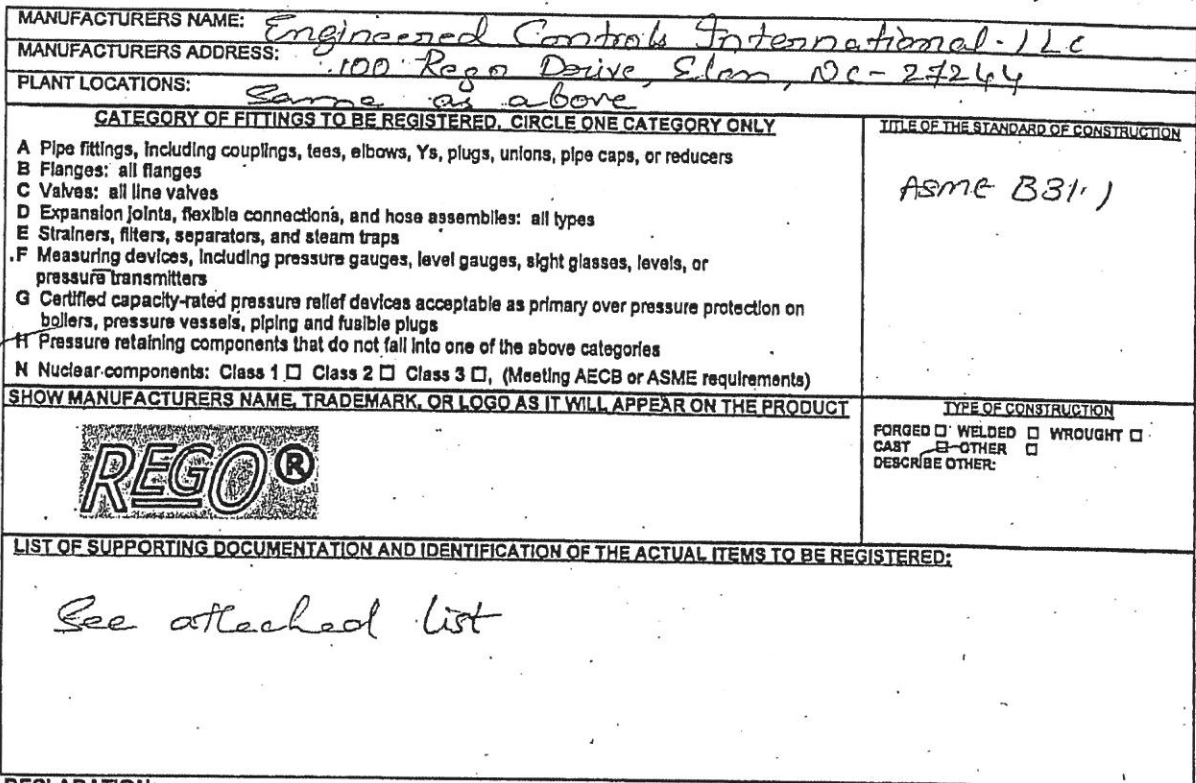 MANUFACTURERS NAME: Engineered Controls International-LLC
MANUFACTURERS ADDRESS: 100 Rego Drive, Elon, NC-27244
PLANT LOCATIONS: Same as above
CATEGORY OF FITTINGS TO BE REGISTERED, CIRCLE ONE CATEGORY ONLY
A Pipe fittings, including couplings, tees, elbows, Ys, plugs, unions, pipe caps, or reducers
B Flanges: all flanges
C Valves: all line valves
D Expansion joints, flexible connections, and hose assemblies: all types
E Strainers, filters, separators, and steam traps
F Measuring devices, including pressure gauges, level gauges, sight glasses, levels, or
pressure transmitters
G Certified capacity-rated pressure relief devices acceptable as primary over pressure protection on
boilers, pressure vessels, piping and fusible plugs
H Pressure retaining components that do not fall into one of the above categories
N Nuclear components: Class 1 ☐ Class 2 ☐ Class 3 ☐, (Meeting AECB or ASME requirements)
TITLE OF THE STANDARD OF CONSTRUCTION
ASME B31.1
SHOW MANUFACTURERS NAME, TRADEMARK, OR LOGO AS IT WILL APPEAR ON THE PRODUCT
REGO®
TYPE OF CONSTRUCTION
FORGED ☐ WELDED ☐ WROUGHT ☐
CAST ☐ OTHER ☐
DESCRIBE OTHER:
LIST OF SUPPORTING DOCUMENTATION AND IDENTIFICATION OF THE ACTUAL ITEMS TO BE REGISTERED:
See attached list
DECLARATION